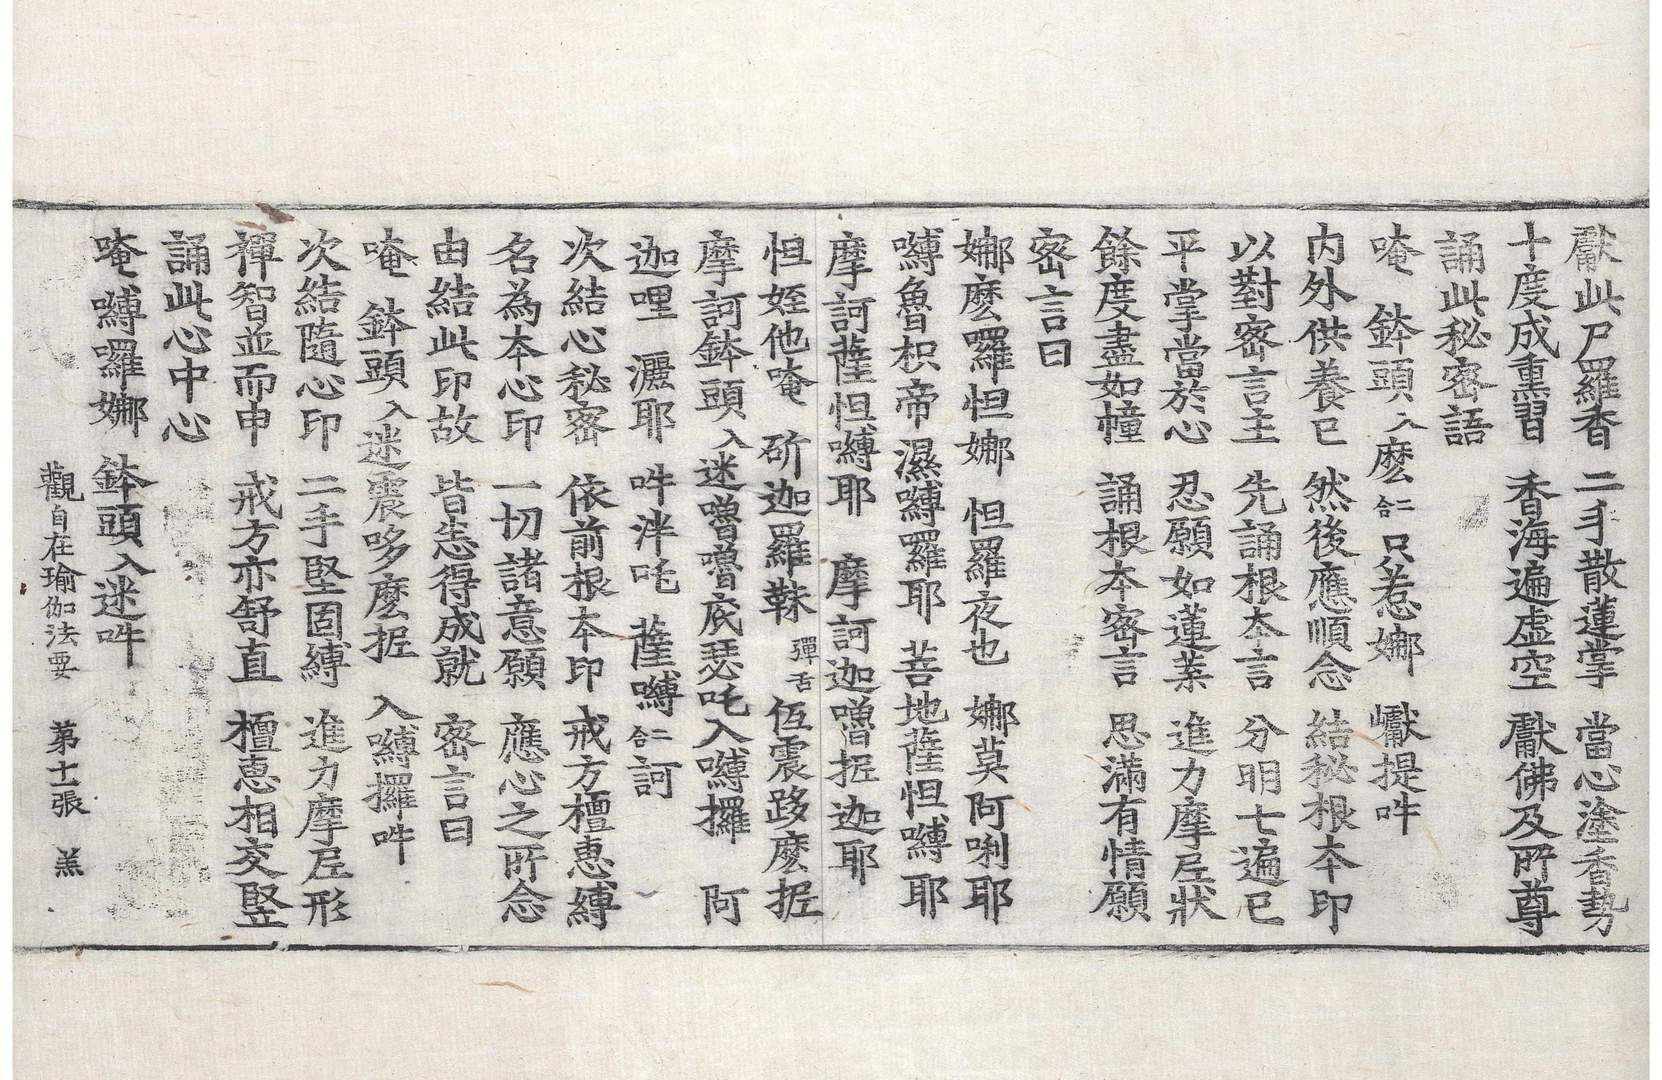 獻此尸羅香　二手散蓮掌　當心塗香勢
十度成熏習　香海遍虛空　獻佛及所尊
誦此秘密語
唵　鉢頭入麽二合只惹娜　巘提吽
内外供養已　然後應順念　結秘根本印
以對密言主　先誦根本言　分明七遍已
平掌當於心　忍願如蓮葉　進力摩尼狀
餘度盡如幢　誦根本密言　思滿有情願
密言曰
娜麽囉怛娜　怛羅夜也　娜莫阿唎耶
嚩魯枳帝濕嚩羅耶　菩地薩怛嚩耶
摩訶薩怛嚩耶　摩訶迦嚕抳迦耶
怛姪他唵　斫迦羅靺　彈舌　伍震跢麽抳
摩訶鉢頭入迷嚕嚕底瑟吒入嚩攞　阿
迦哩　灑耶　吽泮吒　薩嚩二合訶
次結心秘密　依前根本印　戒方檀恵縛
名為本心印　一切諸意願　應心之所念
由結此印故　皆悉得成就　密言曰
唵　鉢頭入迷震哆麽抳　入嚩攞吽
次結隨心印　二手堅固縛　進力摩尼形
禪智並而申　戒方亦舒直　檀恵相交竪
誦此心中心
唵嚩囉娜　鉢頭入迷吽
觀自在瑜伽法要　第十一張　羔